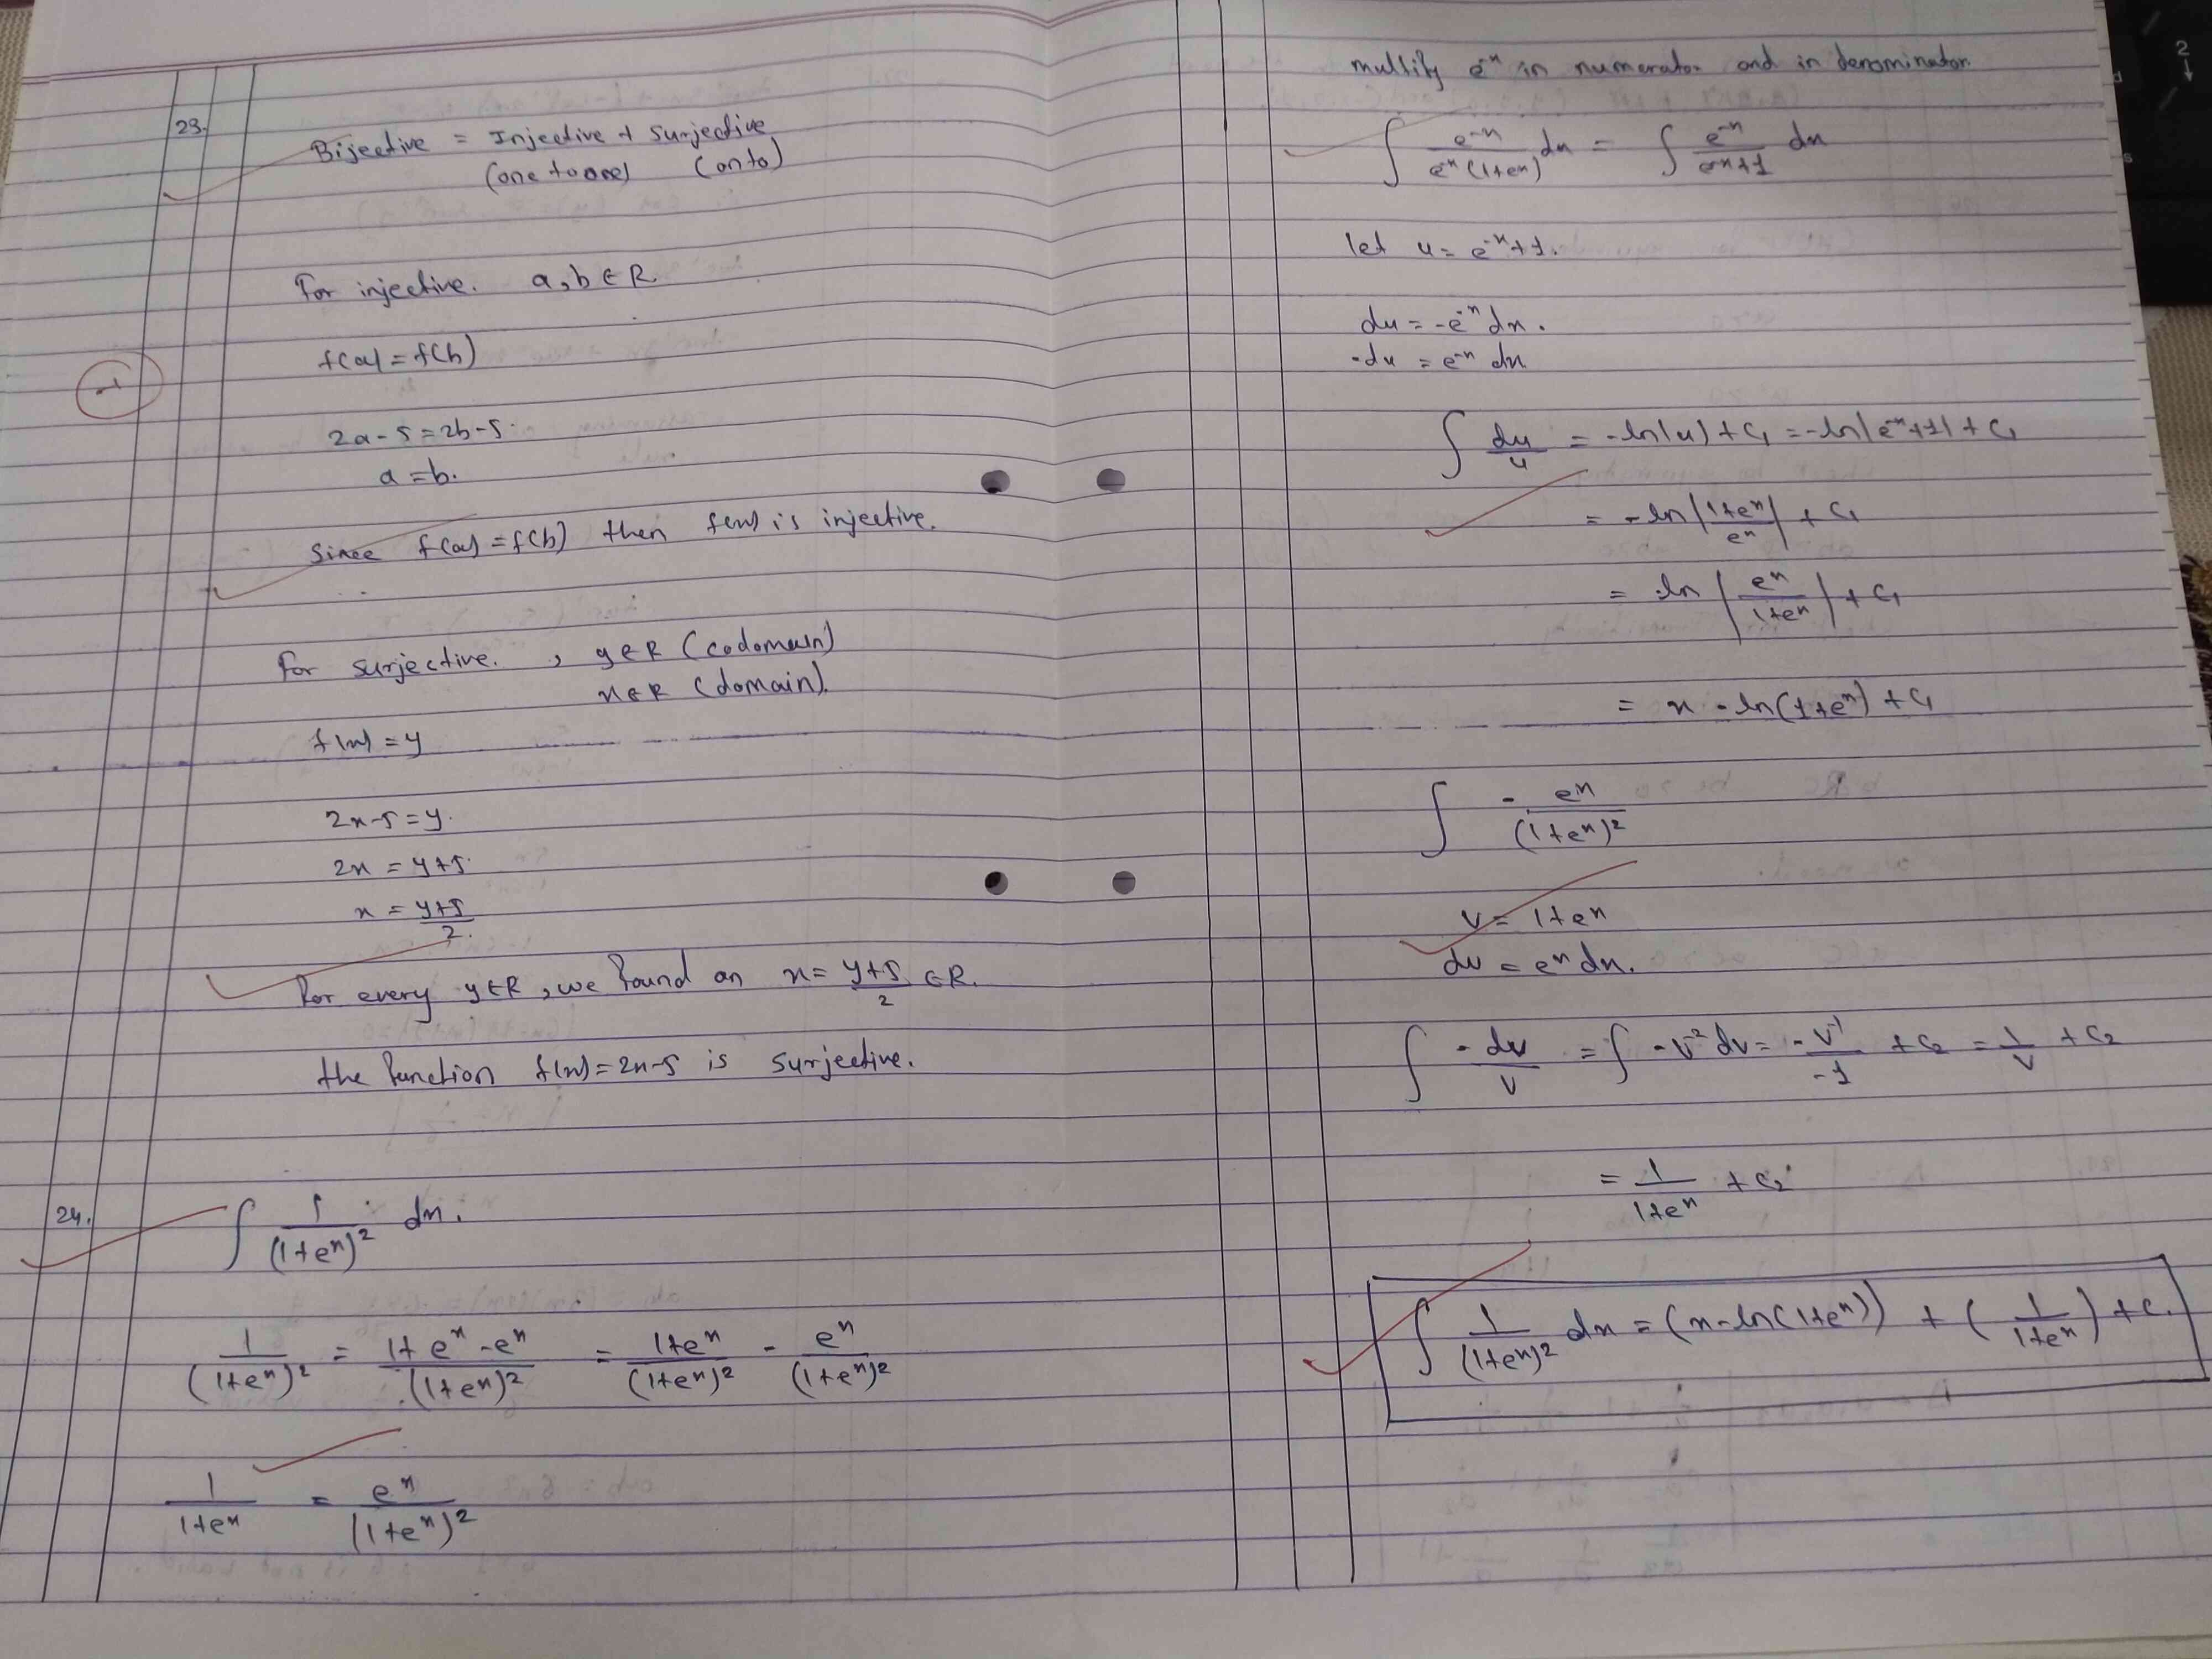 23.
Bijective = Injective + Surjective
(one to one) (onto)
For injective. a, b ∈ R.
f(a) = f(b)
-1
2a - 5 = 2b - 5.
a = b.
Since f(a) = f(b) then f(x) is injective.
For surjective. , y ∈ R (codomain)
x ∈ R (domain).
f(x) = y
2x-5 = y.
2x = y+5.
x = y+5/2.
For every y ∈ R, we found an x = y+5/2 ∈ R.
the function f(x) = 2x-5 is surjective.
24.
∫ 1/(1+eˣ)² dx.
1/(1+eˣ)² = 1+eˣ-eˣ/(1+eˣ)² = 1+eˣ/(1+eˣ)² - eˣ/(1+eˣ)²
1/1+eˣ = eˣ/(1+eˣ)²
multify e⁻ˣ in numerator and in denominator
∫ e⁻ˣ/e⁻ˣ(1+eˣ) dx = ∫ e⁻ˣ/e⁻ˣ+1 dx
let u = e⁻ˣ+1.
du = -e⁻ˣ dx.
-du = e⁻ˣ dx
∫ du/u = -ln|u| + C₁ = -ln|e⁻ˣ+1| + C₁
= -ln|1+eˣ/eˣ| + C₁
= ln|eˣ/1+eˣ| + C₁
= x - ln(1+eˣ) + C₁
∫ - eˣ/(1+eˣ)²
v = 1+eˣ
dv = eˣ dx.
∫ -dv/v = ∫ -v⁻² dv = -v⁻¹/-1 + C₂ = 1/v + C₂
= 1/1+eˣ + C₂
∫ 1/(1+eˣ)² dx = (x-ln(1+eˣ)) + (1/1+eˣ) + C.
2